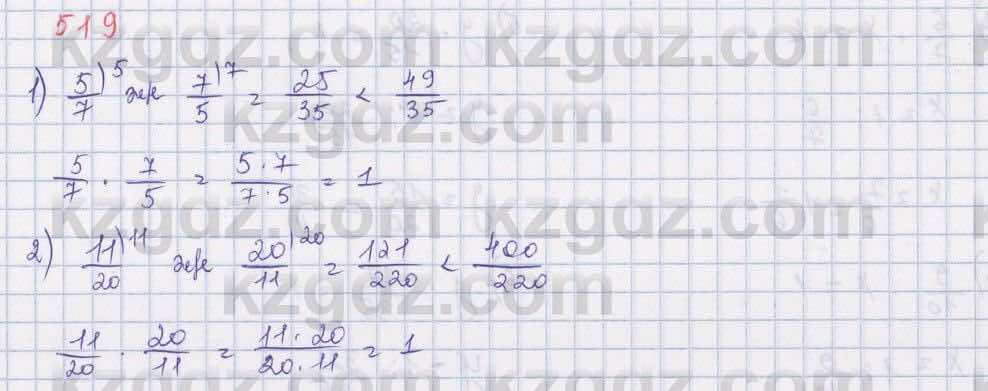 519
kzgdz.com kzgdz.com
1) 5/7 )5 және 7/5 )7 = 25/35 < 49/35
kzgdz.com
5/7 · 7/5 = 5·7/7·5 = 1
kzgdz.com kzgdz.com
2) 11/20 )11 және 20/11 )20 = 121/220 < 400/220
kzgdz.com
11/20 · 20/11 = 11·20/20·11 = 1
kzgdz.com kzgdz.com